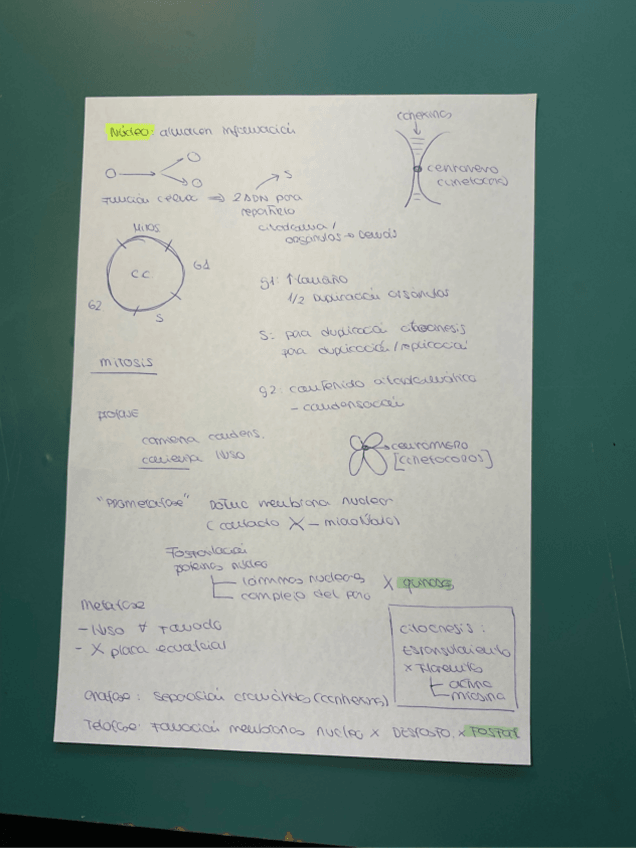 Núcleo: almacen información
cohexinas
centromero
(cinetocoro)
función celular ⇒ 2 ADN para → S
repartirlo
citoplasma /
organulos → demás
Mitos
G1
C.C.
G2
S
g1: ↑ tamaño
1/2 duplicación organulos
S: para duplicación
para duplicación / replicación
mitosis
g2: contenido citoplasmático
- condensación
profase
comienza condens.
comienza huso
centromero
[cinetocoros]
"Prometafase" membrana nuclear
(contacto X - microtúbulo)
Fosforilación
proteinas núcleo
láminas nucleares
complejo del poro
X quinasas
Metafase
- huso ∀ formado
- X placa ecuatorial
citocinesis:
Estrangulamiento
x filamento
actina
miosina
anafase: separación cromátidas (cohexinas)
Telofase: formación membranas nuclea x DESFOSFO. x FOSFAT